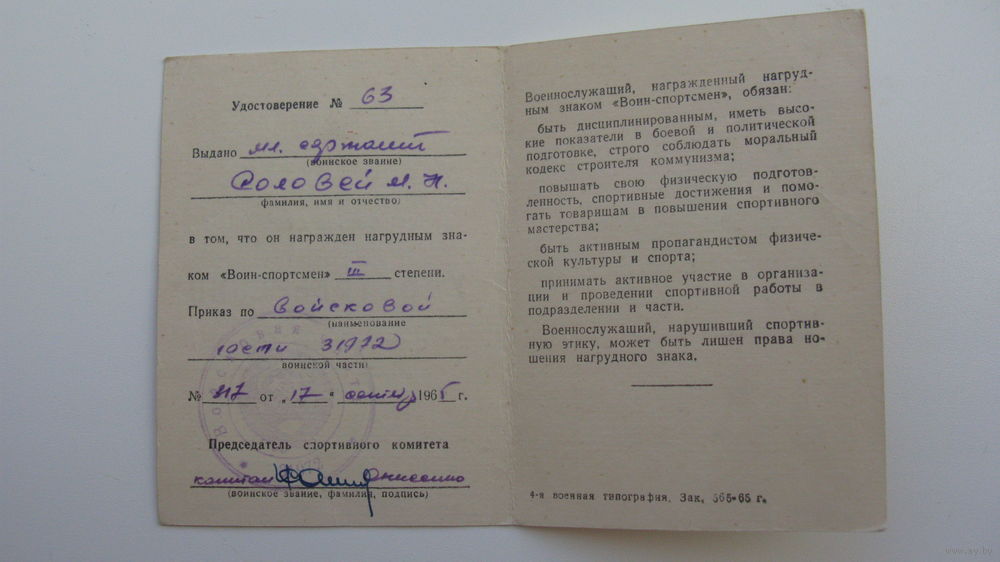 Удостоверение № 63
Выдано мл. сержант
(воинское звание)
Соловей М. Н.
фамилия, имя и отчество)
в том, что он награжден нагрудным зна-
ком «Воин-спортсмен» III степени.
Приказ по войсковой
(наименование
части 31972
воинской части)
от „17" 196 г.
Председатель спортивного комитета
капитан
(воинское звание, фамилия, подпись)
Военнослужащий, награжденный нагруд-
ным знаком «Воин-спортсмен», обязан:
быть дисциплинированным, иметь высо-
кие показатели в боевой и политической
подготовке, строго соблюдать моральный
кодекс строителя коммунизма;
повышать свою физическую подготов-
ленность, спортивные достижения и помо-
гать товарищам в повышении спортивного
мастерства;
быть активным пропагандистом физиче-
ской культуры и спорта;
принимать активное участие в организа-
ции и проведении спортивной работы в
подразделении и части.
Военнослужащий, нарушивший спортив-
ную этику, может быть лишен права но-
шения нагрудного знака.
4-я военная типография. Зак. 565-65 г.
www.ay.by